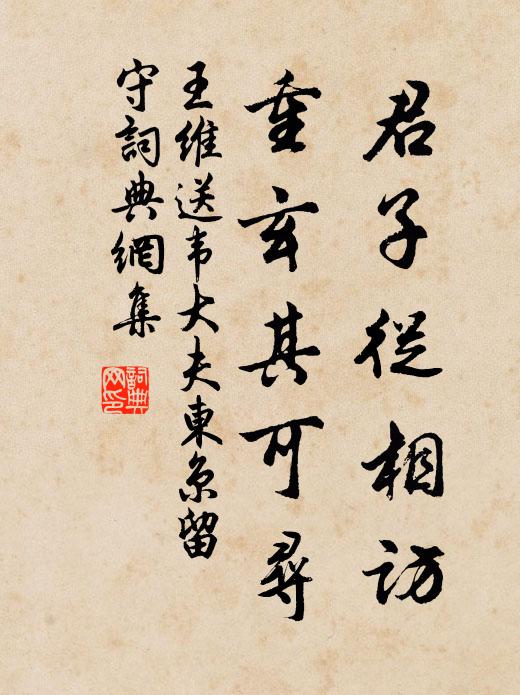 君子從相訪
重玄其可尋
王維送韦大夫東京留
守詞典網集
詞典
网印